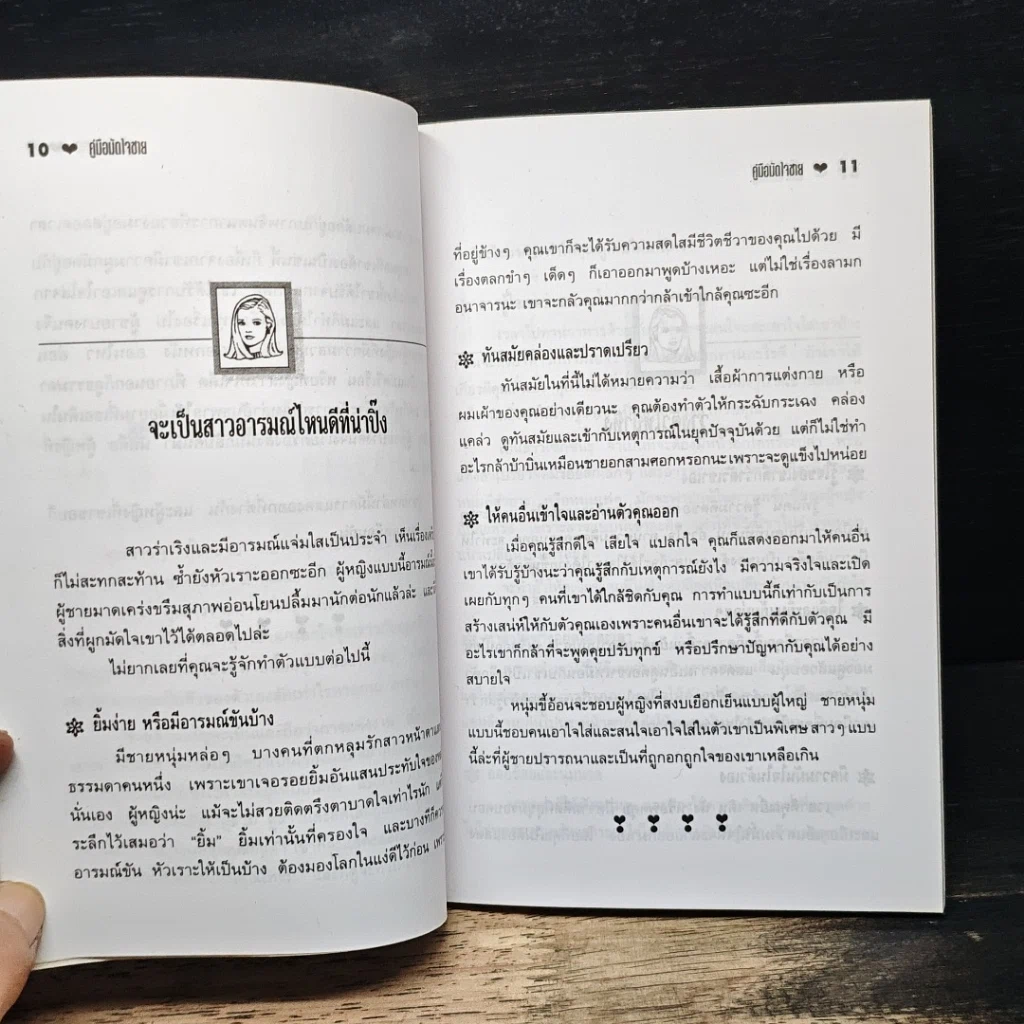 10 ❤ คู่มือมัดใจชาย
จะเป็นสาวอารมณ์ไหนดีที่น่าปิ๊ง
สาวร่าเริงและมีอารมณ์แจ่มใสเป็นประจำ เห็นเรื่อง
ก็ไม่สะทกสะท้าน ซ้ำยังหัวเราะออกซะอีก ผู้หญิงแบบนี้
ผู้ชายมาดเคร่งขรึมสุภาพอ่อนโยนปลื้มมานักต่อนักแล้วล่ะ
สิ่งที่ผูกมัดใจเขาไว้ได้ตลอดไปล่ะ
ไม่ยากเลยที่คุณจะรู้จักทำตัวแบบต่อไปนี้
ยิ้มง่าย หรือมีอารมณ์ขันบ้าง
มีชายหนุ่มหล่อๆ บางคนที่ตกหลุมรักสาวหน้าตา
ธรรมดาคนหนึ่ง เพราะเขาเจอรอยยิ้มอันแสนประทับใจของ
นั่นเอง ผู้หญิงน่ะ แม้จะไม่สวยติดตรึงตาบาดใจเท่าไรนัก
ระลึกไว้เสมอว่า "ยิ้ม" ยิ้มเท่านั้นที่ครองใจ และบางที
อารมณ์ขัน หัวเราะให้เป็นบ้าง ต้องมองโลกในแง่ดีไว้ก่อน
คู่มือมัดใจชาย ❤ 11
ที่อยู่ข้างๆ คุณเขาก็จะได้รับความสดใสมีชีวิตชีวาของคุณไปด้วย มี
เรื่องตลกขำๆ เด็ดๆ ก็เอาออกมาพูดบ้างเหอะ แต่ไม่ใช่เรื่องลามก
อนาจารนะ เขาจะกลัวคุณมากกว่ากล้าเข้าใกล้คุณซะอีก
ทันสมัยคล่องและปราดเปรียว
ทันสมัยในที่นี้ไม่ได้หมายความว่า เสื้อผ้าการแต่งกาย หรือ
ผมเผ้าของคุณอย่างเดียวนะ คุณต้องทำตัวให้กระฉับกระเฉง คล่อง
แคล่ว ดูทันสมัยและเข้ากับเหตุการณ์ในยุคปัจจุบันด้วย แต่ก็ไม่ใช่ทำ
อะไรกล้าบ้าบิ่นเหมือนชายอกสามศอกหรอกนะเพราะจะดูแข็งไปหน่อย
ให้คนอื่นเข้าใจและอ่านตัวคุณออก
เมื่อคุณรู้สึกดีใจ เสียใจ แปลกใจ คุณก็แสดงออกมาให้คนอื่น
เขาได้รับรู้บ้างนะว่าคุณรู้สึกกับเหตุการณ์ยังไง มีความจริงใจและเปิด
เผยกับทุกๆ คนที่เขาได้ใกล้ชิดกับคุณ การทำแบบนี้ก็เท่ากับเป็นการ
สร้างเสน่ห์ให้กับตัวคุณเองเพราะคนอื่นเขาจะได้รู้สึกที่ดีกับตัวคุณ มี
อะไรเขาก็กล้าที่จะพูดคุยปรับทุกข์ หรือปรึกษาปัญหากับคุณได้อย่าง
สบายใจ
หนุ่มขี้อ้อนจะชอบผู้หญิงที่สงบเยือกเย็นแบบผู้ใหญ่ ชายหนุ่ม
แบบนี้ชอบคนเอาใจใส่และสนใจเอาใจใส่ในตัวเขาเป็นพิเศษ สาวๆ แบบ
นี้ล่ะที่ผู้ชายปรารถนาและเป็นที่ถูกอกถูกใจของเขาเหลือเกิน